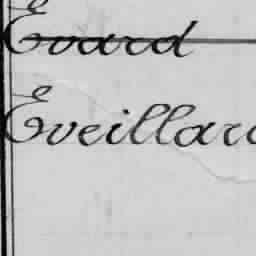 Evard
Eveillard